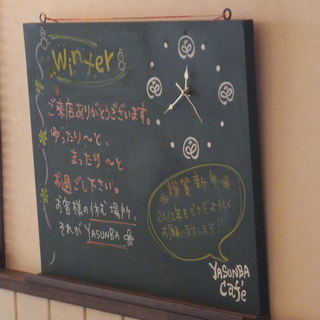 Winter
ご来店ありがとうございます。
ゆったり〜と
まったり〜と
お過ごし下さい。
お客様の休む場所、
それが YASUNBA
謹賀新年
2012年もどうぞよろしく
お願い致します!!
YASUNBA
Cafe